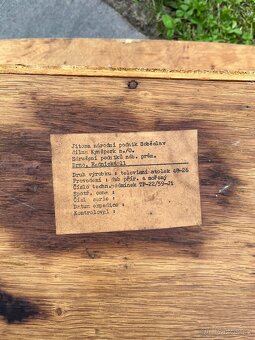 Jitona národní podnik Soběslav
Silon Kynšperk n./O.
Sdružení podniků náb. prům.
Brno, Radnická 11
Druh výrobku : televizní stolek 48-26
Provedení : dub přír. a mořený
Číslo techn.podmínek TP-22/59-J1
Spotř. cena :
Čísl serie :
Datum expedice :
Kontroloval :